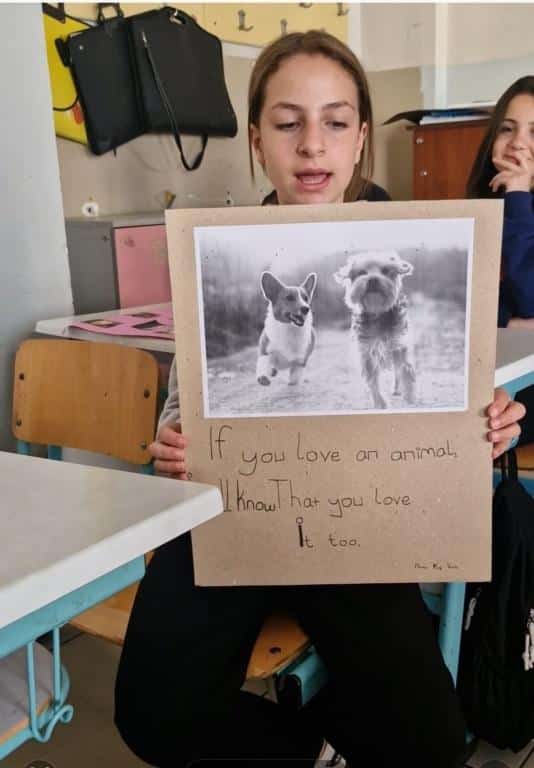 If you Love an animal,
I Know That you Love
it too.